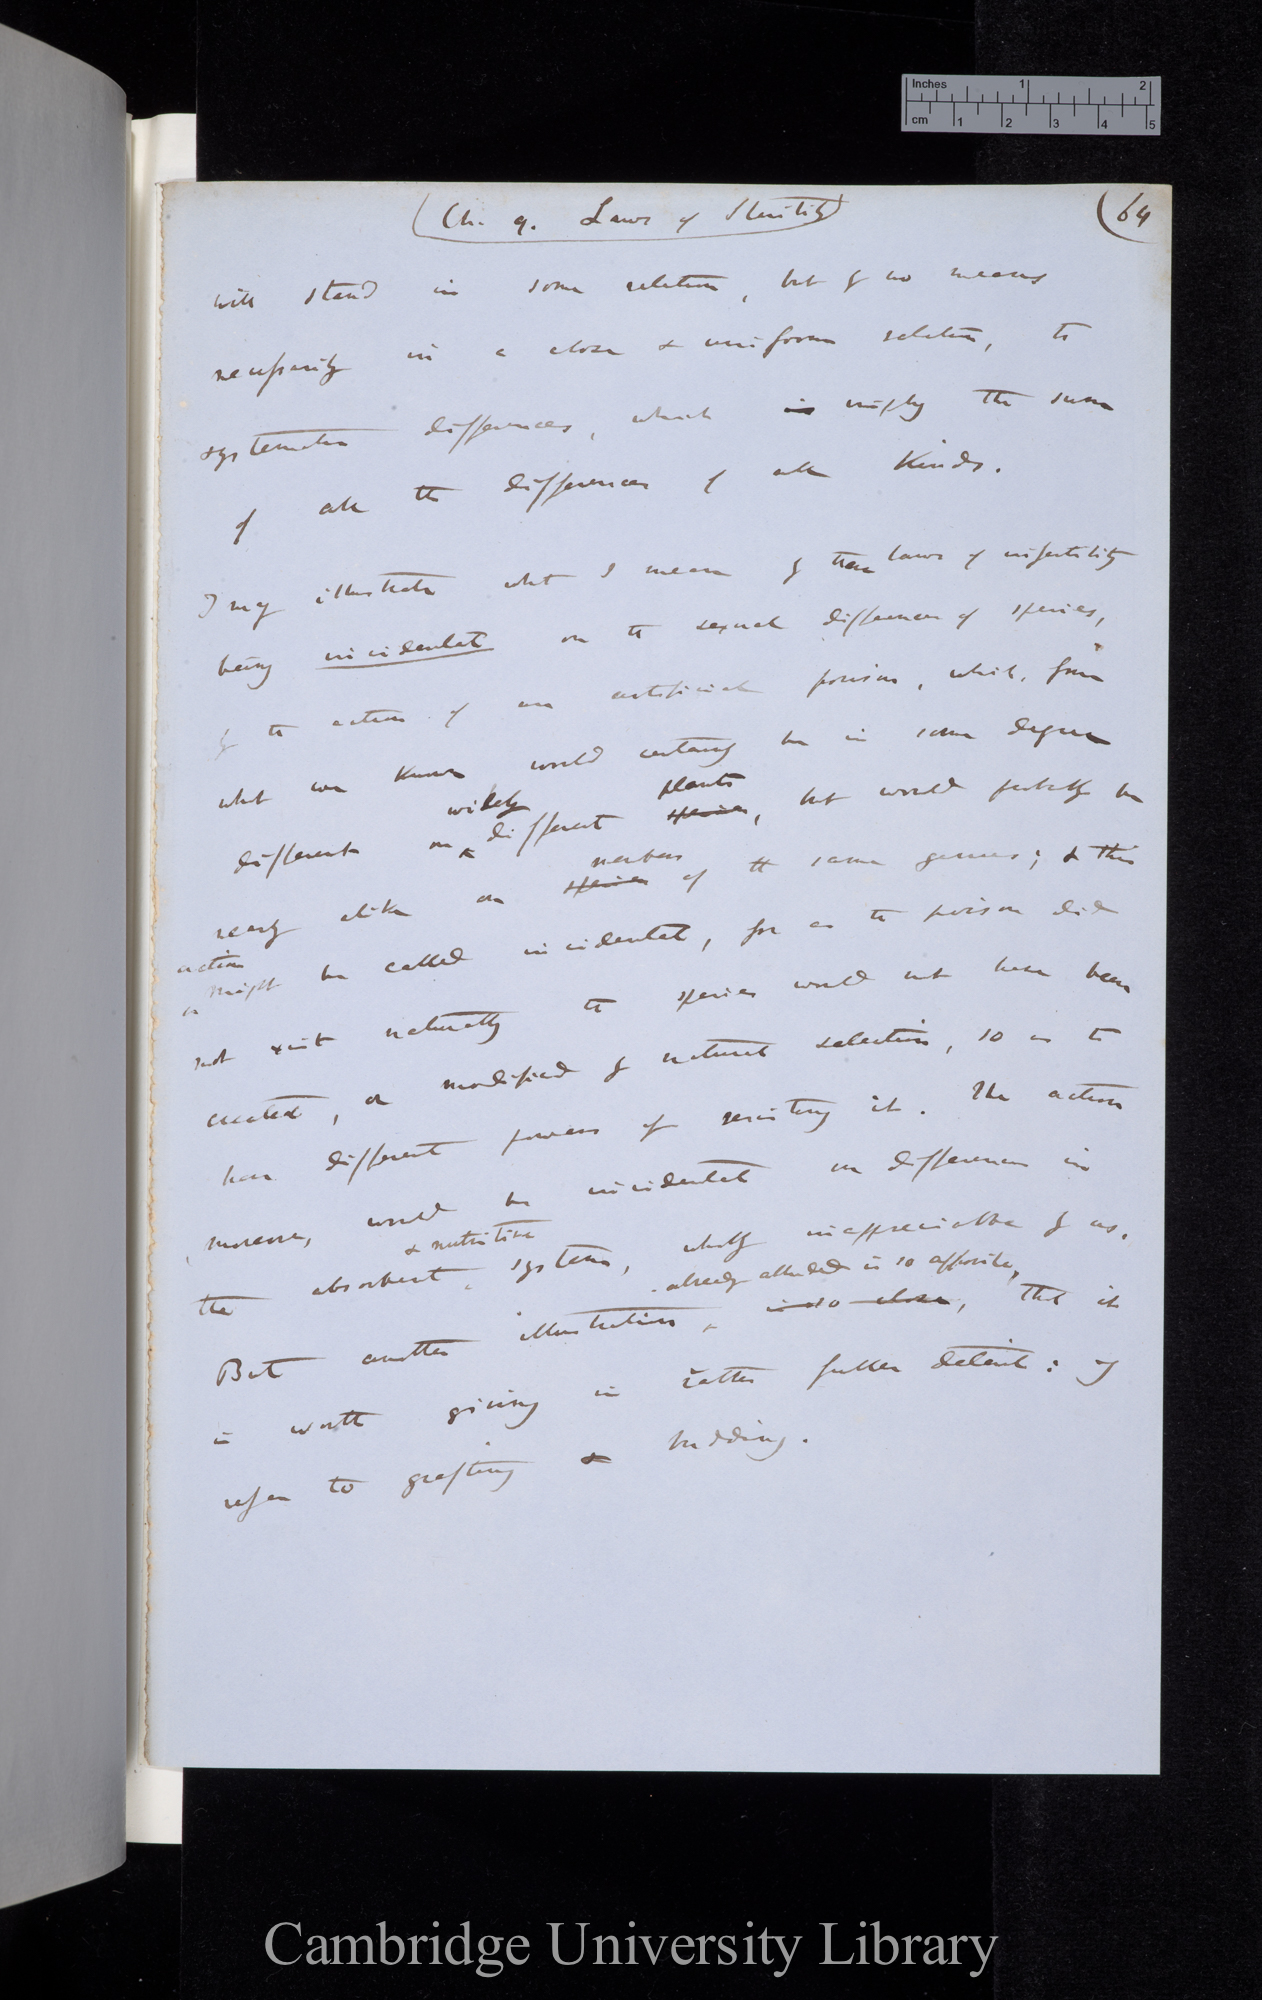 Inches 1 2
cm 1 2 3 4 5
(Ch. 9. Laws of Sterility)
(64
will stand in some relation, but by no means
necessarily in a close & uniform relation, to
systematic differences, which is imply the sum
of all the differences of all kinds.
I may illustrate what I mean by these laws of infertility
being incidental on the sexual differences of species,
by the action of an artificial poison, which, from
what we know would certainly be in some degree
widely plants
different on different species, but would probably be
members
nearly alike on species of the same genus; & this
action
might be called incidental, for as the poison did
not exist naturally the species would not have been
created, or modified by natural selection, so as to
have different powers of resisting it. The action
moreover, would be incidental on differences in
& nutritive
the absorbent systems, wholly inappreciable by us.
already alluded is so apposite,
But another illustration, is so close, that it
is worth giving in rather fuller detail: I
refer to grafting & budding.
Cambridge University Library